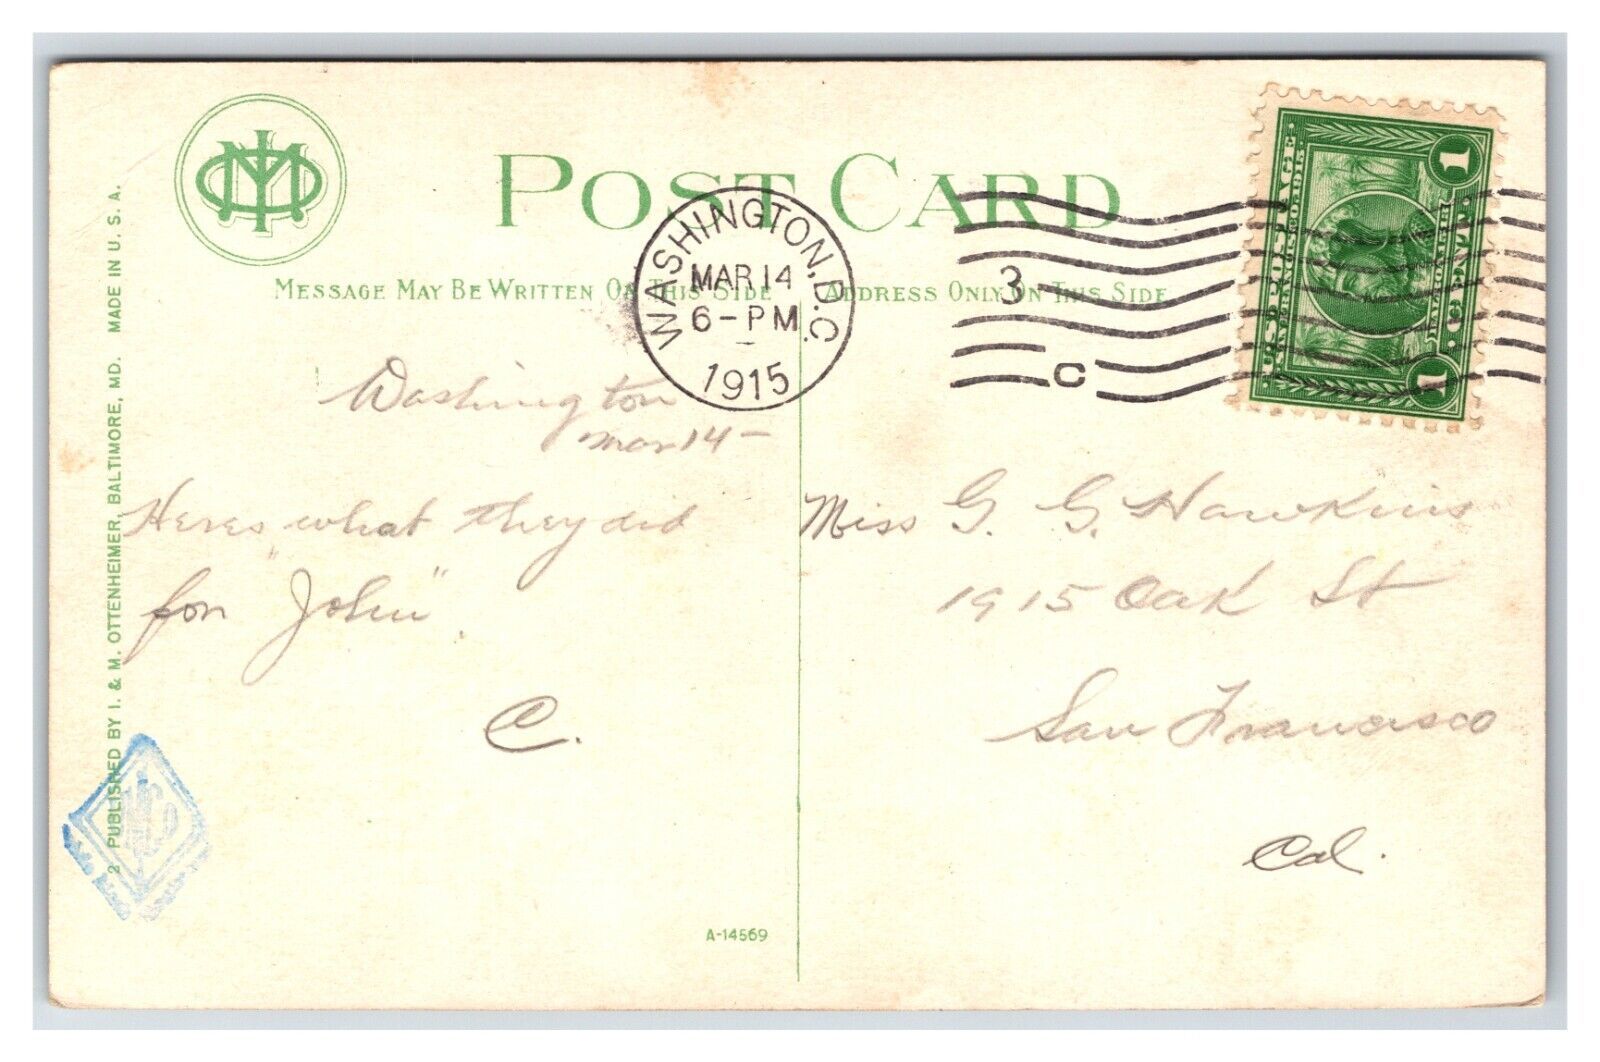 POST CARD
MESSAGE MAY BE WRITTEN ON THIS SIDE
ADDRESS ONLY ON THIS SIDE
WASHINGTON, D.C.
MAR 14
6-PM
1915
3
C
1
1
Washington
Mar 14-
Heres what they did
for "John".
C.
Miss G. G. Hawkins
1915 Oak St
San Francisco
Cal.
2 PUBLISHED BY I. & M. OTTENHEIMER, BALTIMORE, MD. MADE IN U. S. A.
A-14569